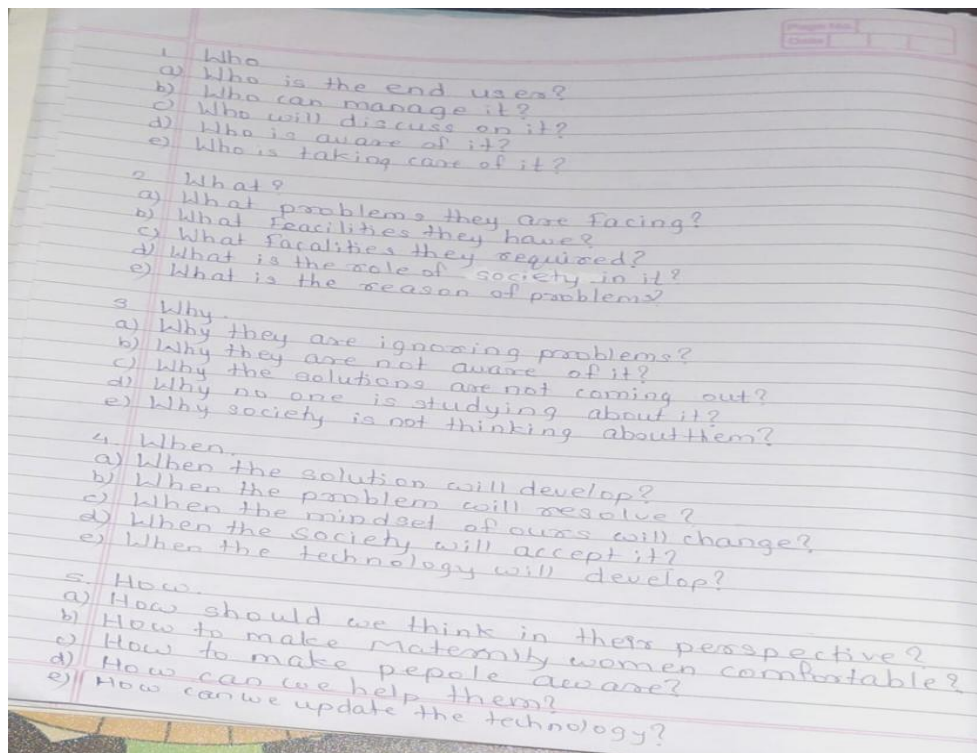 Page No.
Date
1. Who
a) Who is the end user?
b) Who can manage it?
c) Who will discuss on it?
d) Who is aware of it?
e) Who is taking care of it?
2. What?
a) What problems they are facing?
b) What feacilities they have?
c) What facalities they required?
d) What is the role of society in it?
e) What is the reason of problems?
3. Why.
a) Why they are ignoring problems?
b) Why they are not aware of it?
c) Why the solutions are not coming out?
d) Why no one is studying about it?
e) Why society is not thinking about them?
4. When.
a) When the solution will develop?
b) When the problem will resolve?
c) When the mindset of ours will change?
d) When the society will accept it?
e) When the technology will develop?
5. How.
a) How should we think in their perspective?
b) How to make maternity women comfortable?
c) How to make pepole aware?
d) How can we help them?
e) How can we update the technology?